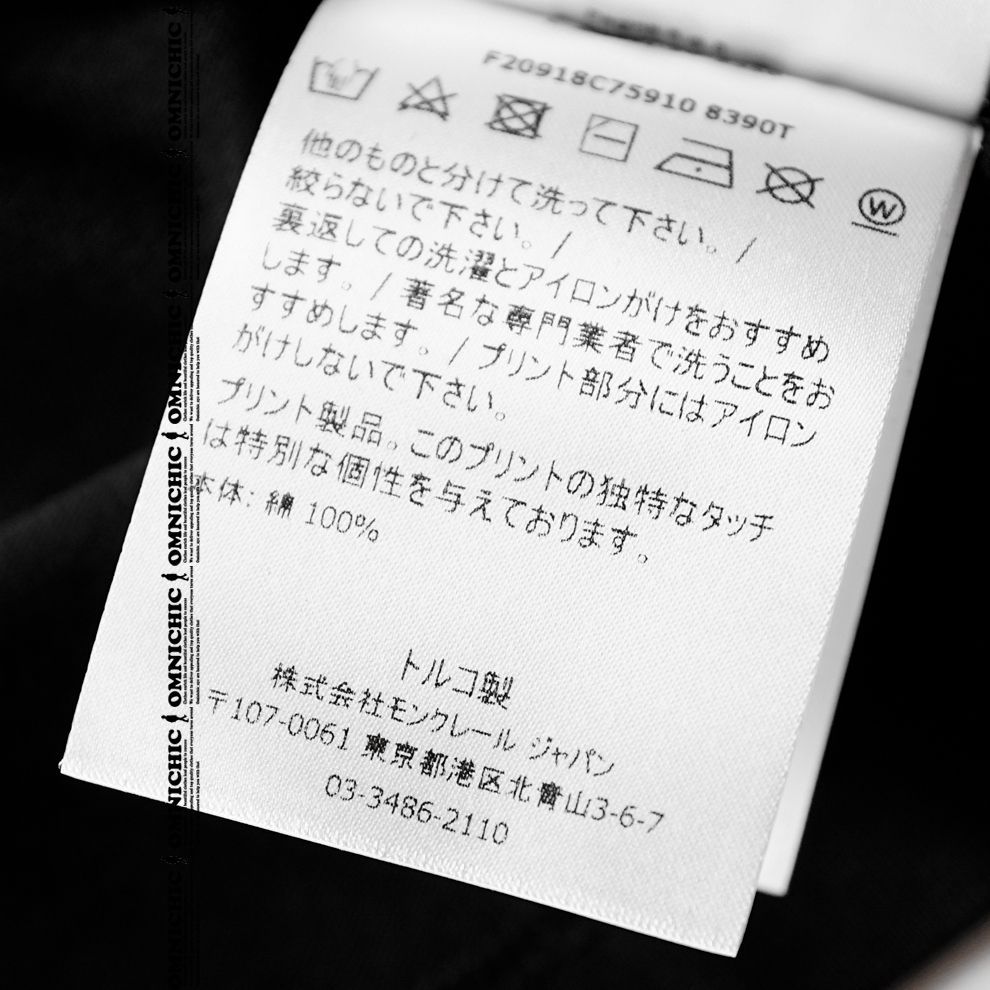 F20918C75910 8390T
W
他のものと分けて洗って下さい。/
絞らないで下さい。/
裏返しての洗濯とアイロンがけをおすすめ
します。/ 著名な専門業者で洗うことをお
すすめします。/ プリント部分にはアイロン
がけしないで下さい。
プリント製品。このプリントの独特なタッチ
は特別な個性を与えております。
本体: 綿 100%
トルコ製
株式会社モンクレール ジャパン
〒107-0061 東京都港区北青山3-6-7
03-3486-2110
OMNICHIC
OMNICHIC
OMNICHIC
OMNICHIC
OMNICHIC
OMNICHIC
OMNICHIC